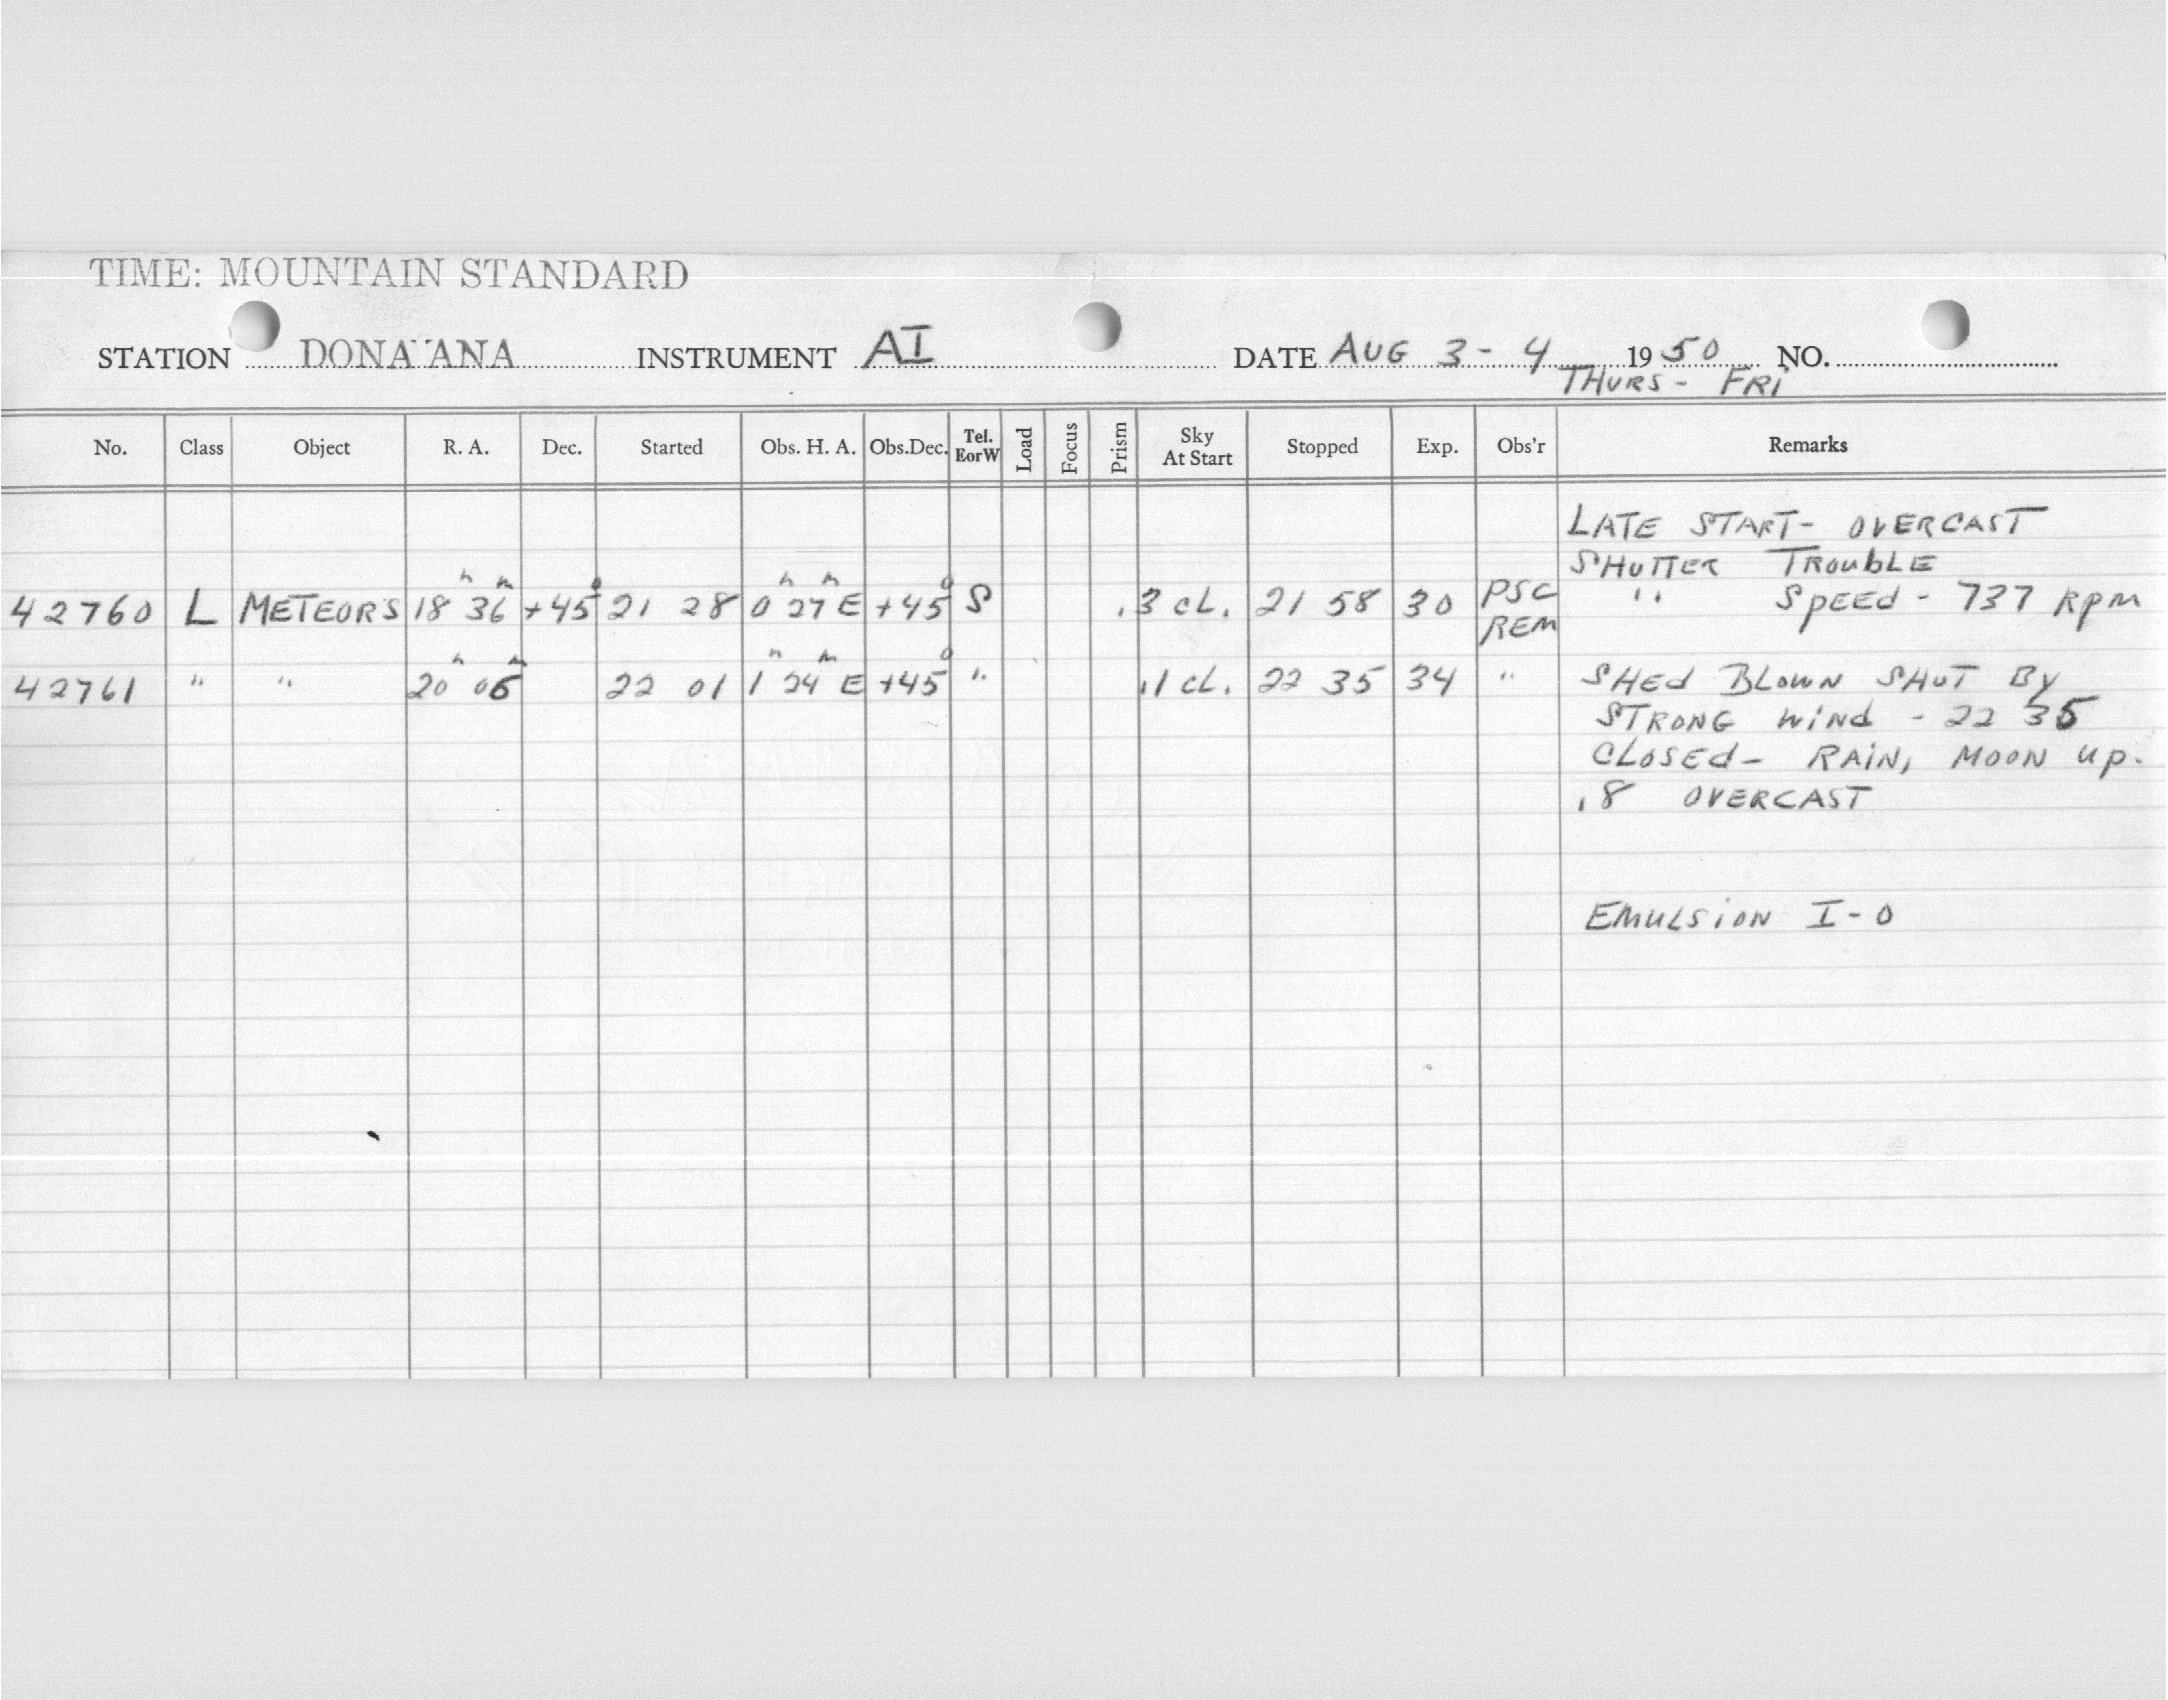 TIME: MOUNTAIN STANDARD
STATION DONA ANA INSTRUMENT AI DATE AUG 3-4 1950 NO.
THURS - FRI
No. Class Object R. A. Dec. Started Obs. H. A. Obs.Dec. Tel. EorW Load Focus Prism Sky At Start Stopped Exp. Obs'r Remarks
LATE START - OVERCAST
SHUTTER TROUBLE
42760 L METEORS 18h 36m +45° 21 28 0h 27m E +45° S .3 CL. 21 58 30 PSC " SPEED - 737 RPM
REM
42761 " " 20h 06m 22 01 1h 24m E +45° " .1 CL. 22 35 34 " SHED BLOWN SHUT BY
STRONG WIND - 22 35
CLOSED - RAIN, MOON UP.
.8 OVERCAST
EMULSION I-O